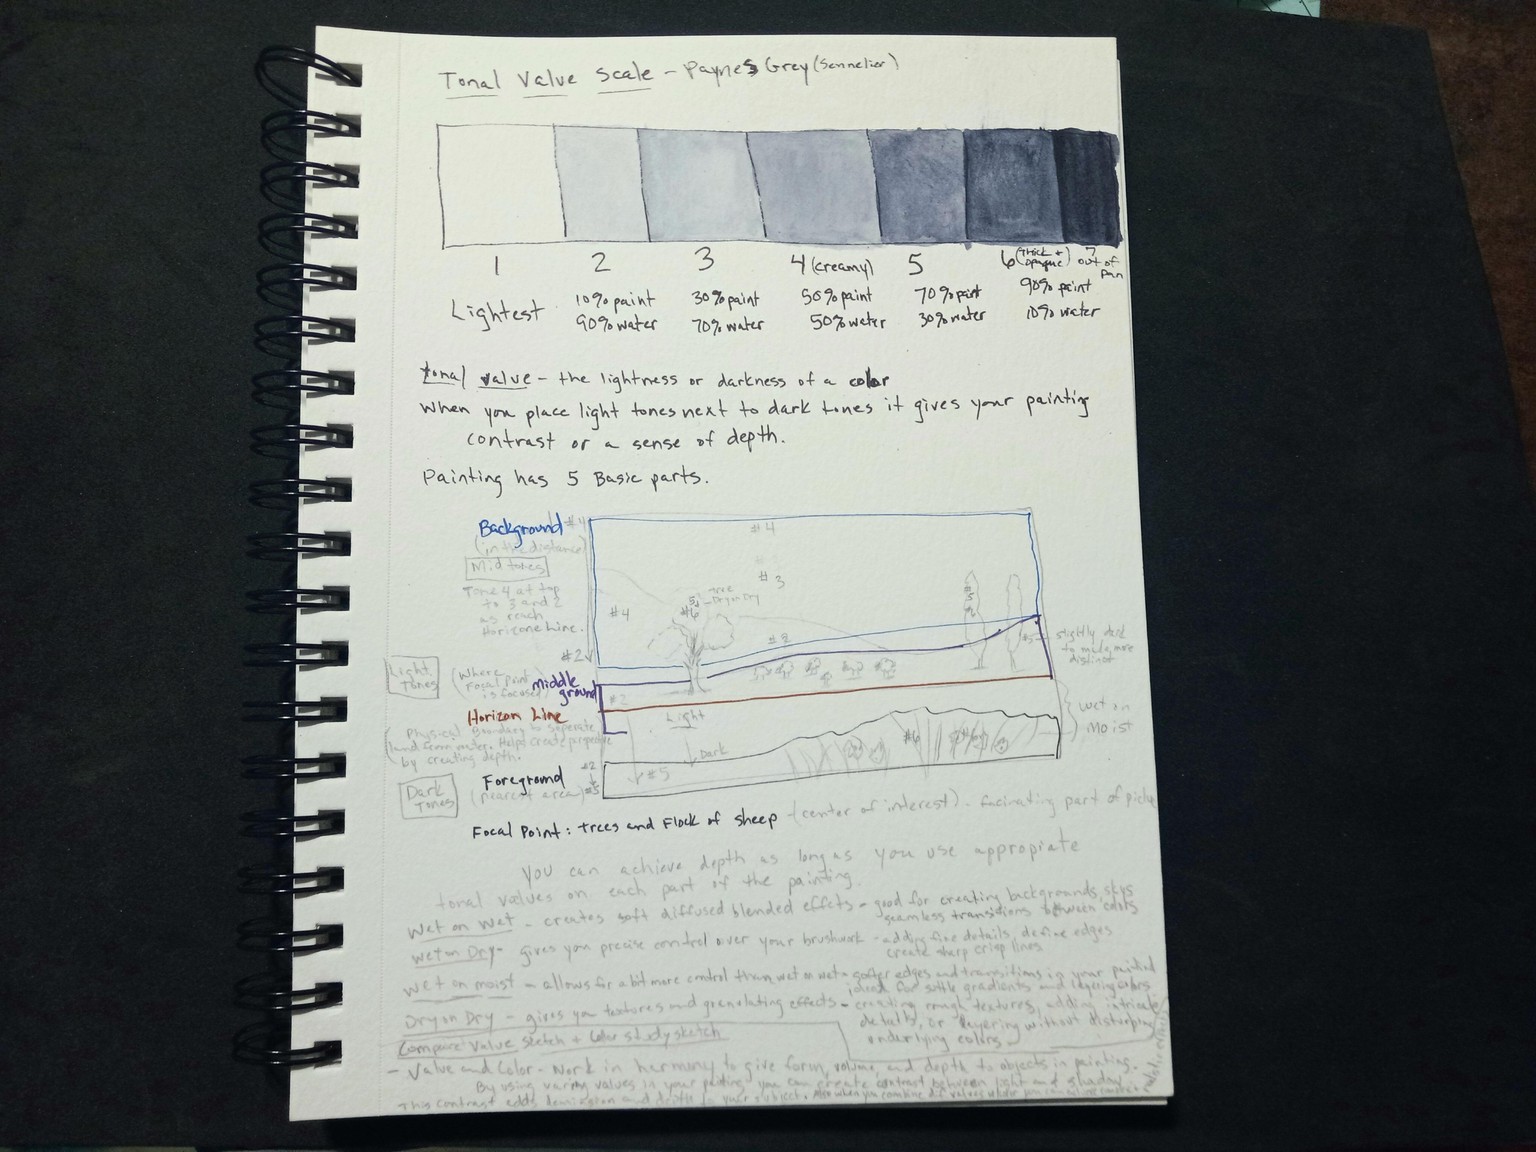 Tonal Value Scale - Paynes Grey (Sennelier)
1 2 3 4 (creamy) 5 6 (thick + opaque) 7 out of pan
Lightest 10% paint 30% paint 50% paint 70% paint 90% paint
90% water 70% water 50% water 30% water 10% water
tonal value - the lightness or darkness of a color
when you place light tones next to dark tones it gives your painting
contrast or a sense of depth.
Painting has 5 Basic parts.
Background #4
(in the distance)
Mid tones
Tone 4 at top
to 3 and 2
as reach
Horizone Line.
#2
#4
#3
#4
5
#6
tree
Dry on Dry
#2
#5
#5
slightly dark
to make more
distinct
Light
Tones
(where
Focal point
is focused)
Middle
ground
#2
Horizon Line
(Physical Boundary to seperate
land from water. Helps create perspective
by creating depth.
Light
Dark
#5
#6
wet on
moist
Dark
Tones
Foreground
(nearest area)
#2
#5
Focal Point: trees and Flock of sheep - (center of interest). facinating part of picture
you can achieve depth as long as you use appropiate
tonal values on each part of the painting.
Wet on wet - creates soft diffused blended effects - good for creating backgrounds, skys
seamless transitions between colors
wet on Dry - gives you precise control over your brushwork - adding fine details, define edges
create sharp crisp lines
wet on moist - allows for a bit more control than wet on wet - softer edges and transitions in your painting
ideal for sutle gradients and layering colors
Dry on Dry - gives you textures and granulating effects - creating rough textures, adding intricate
details, or layering without disturbing
underlying colors
Compare Value Sketch + Color study sketch
- Value and Color - Work in harmony to give form, volume, and depth to objects in painting.
By using varing values in your painting you can create contrast between light and shadow.
This contrast adds demension and depth to your subject. Also when you combine dif values